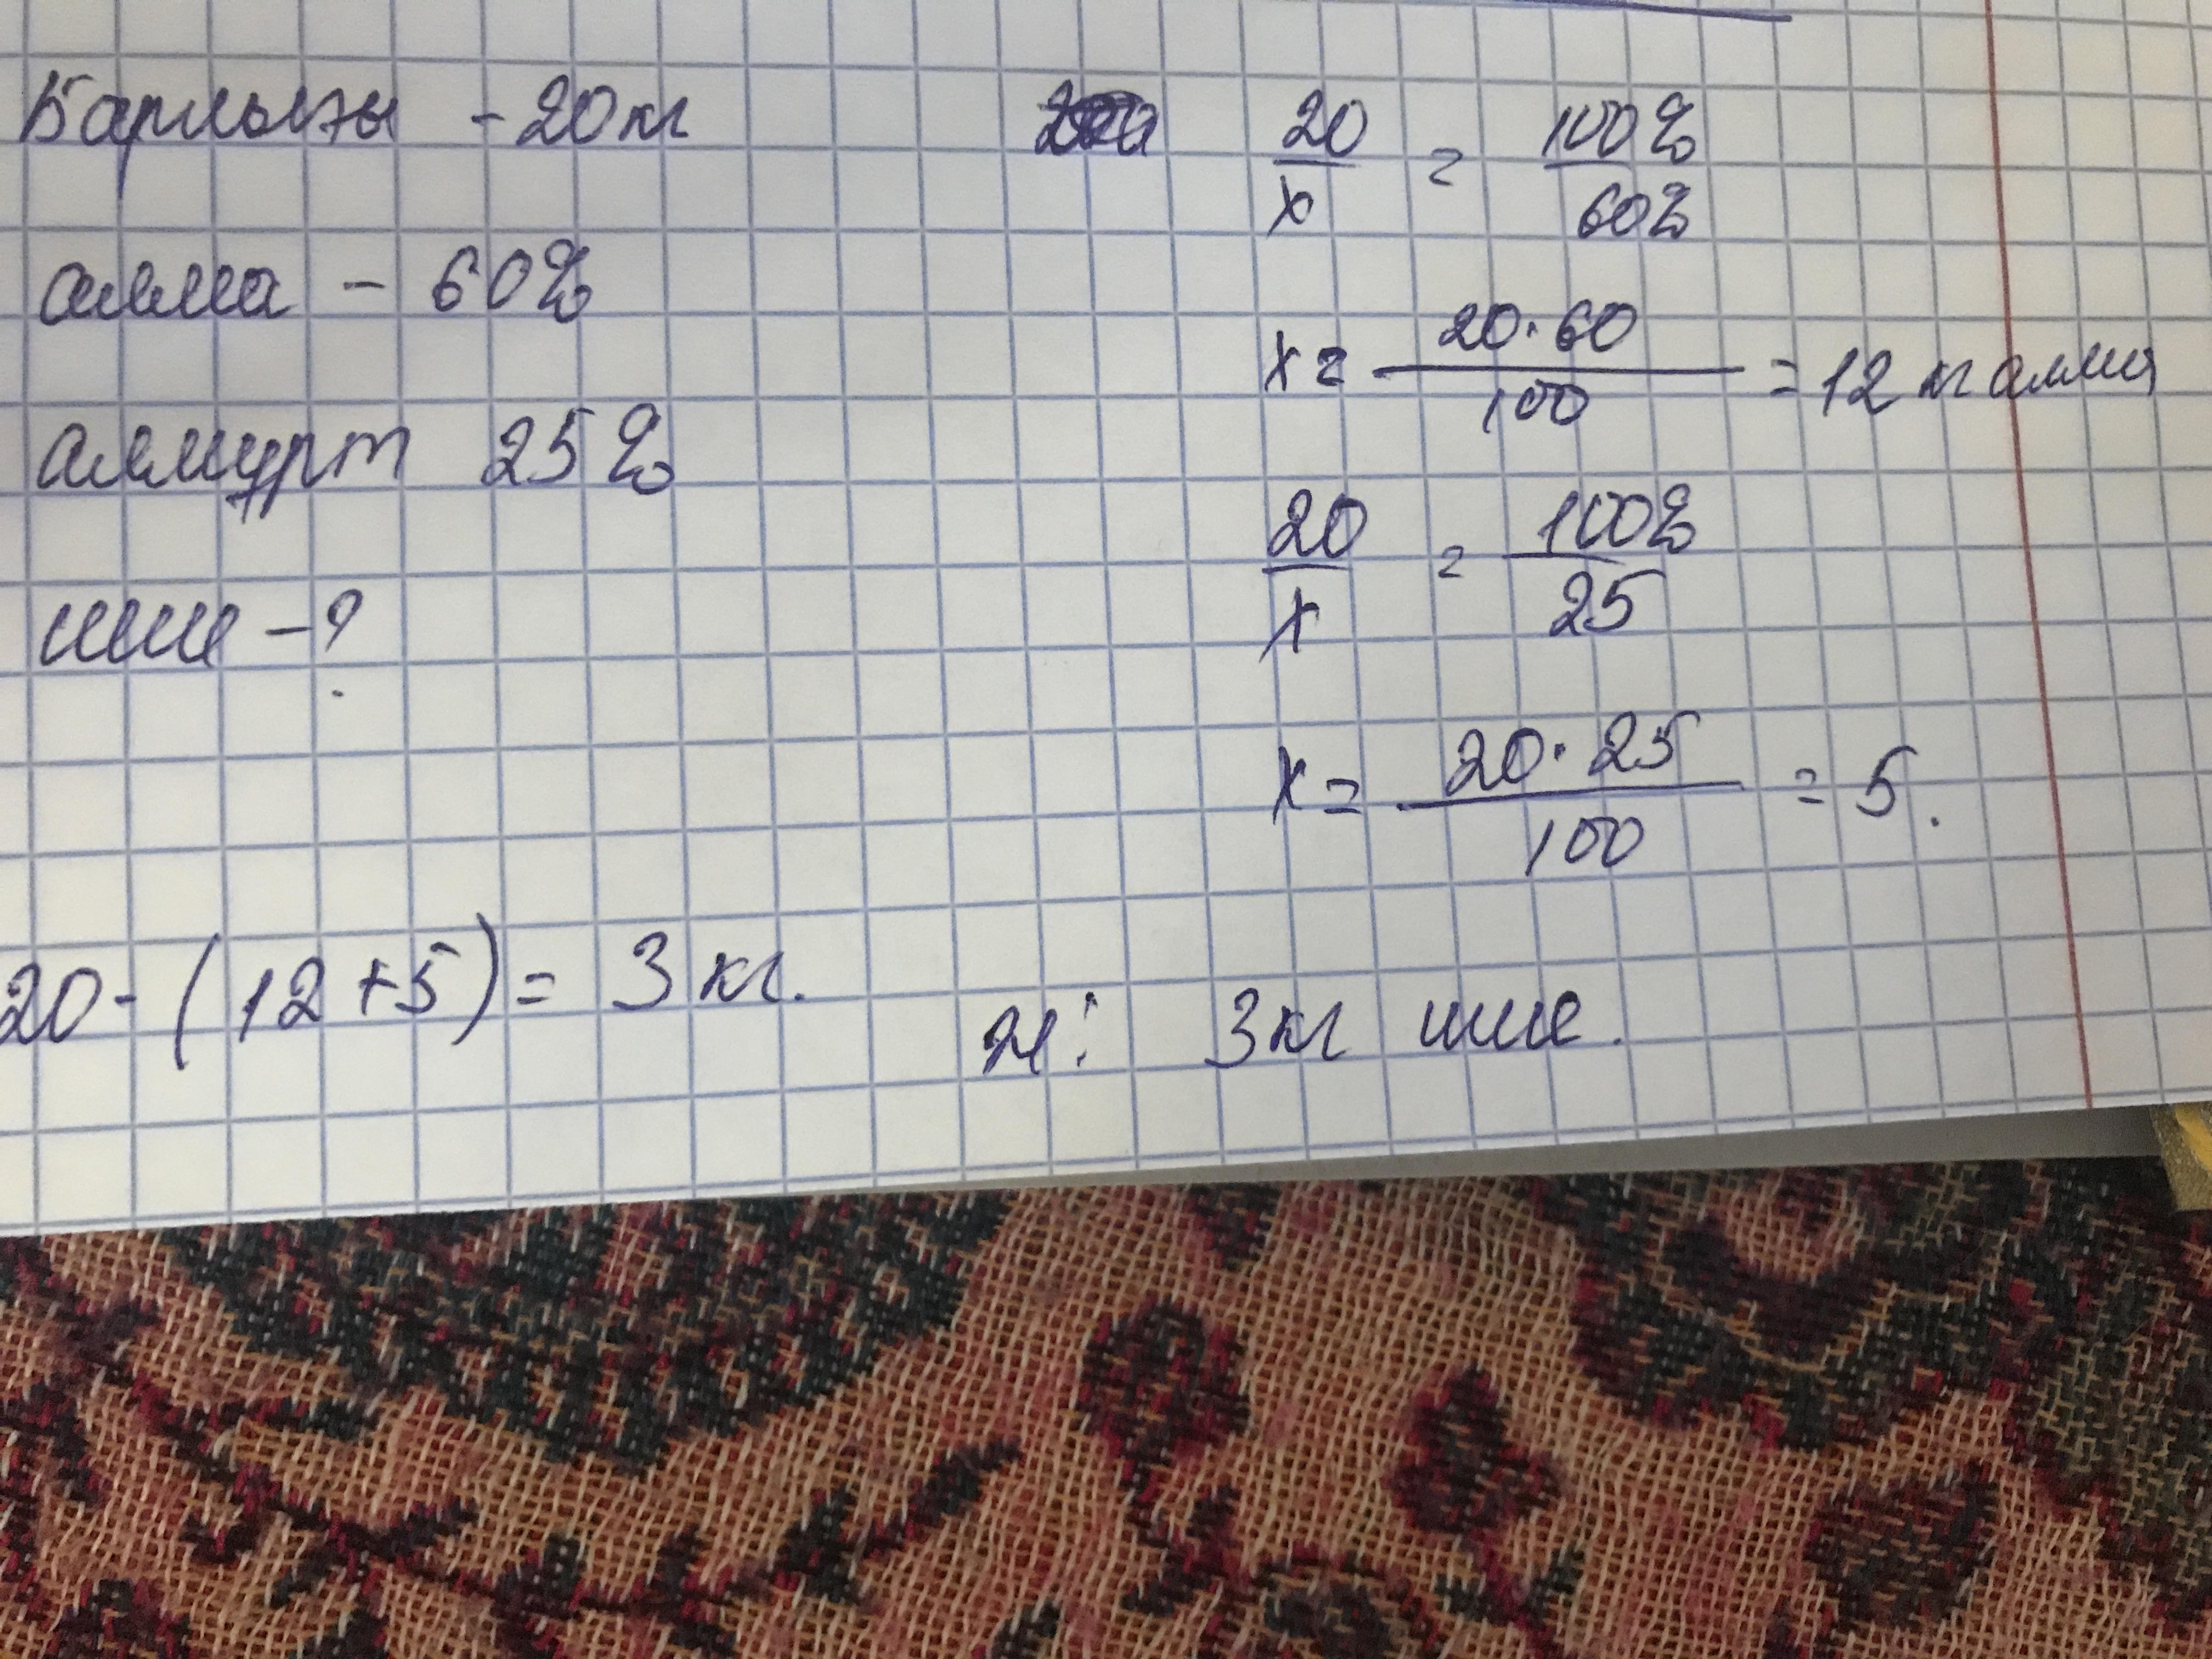 Барлығы - 20 кг
алма - 60%
алмұрт 25%
шие - ?
20/x = 100%/60%
x = 20·60/100 = 12 кг алма
20/x = 100%/25
x = 20·25/100 = 5.
20 - (12+5) = 3 кг.
Ж: 3кг шие.